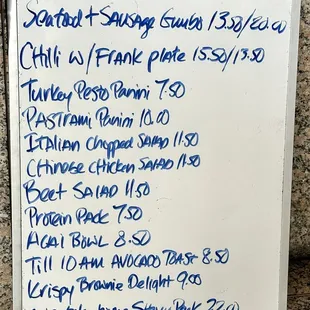 Seafood + Sausage Gumbo 13.50/20.00
Chilli w/ Frank plate 15.50/13.50
Turkey Pesto Panini 7.50
Pastrami Panini 10.00
Italian Chopped Salad 11.50
Chinese Chicken Salad 11.50
Beet Salad 11.50
Protein Pack 7.50
Acai Bowl 8.50
Till 10 AM Avocado Toast 8.50
Krispy Brownie Delight 9.00
Pack 22.00